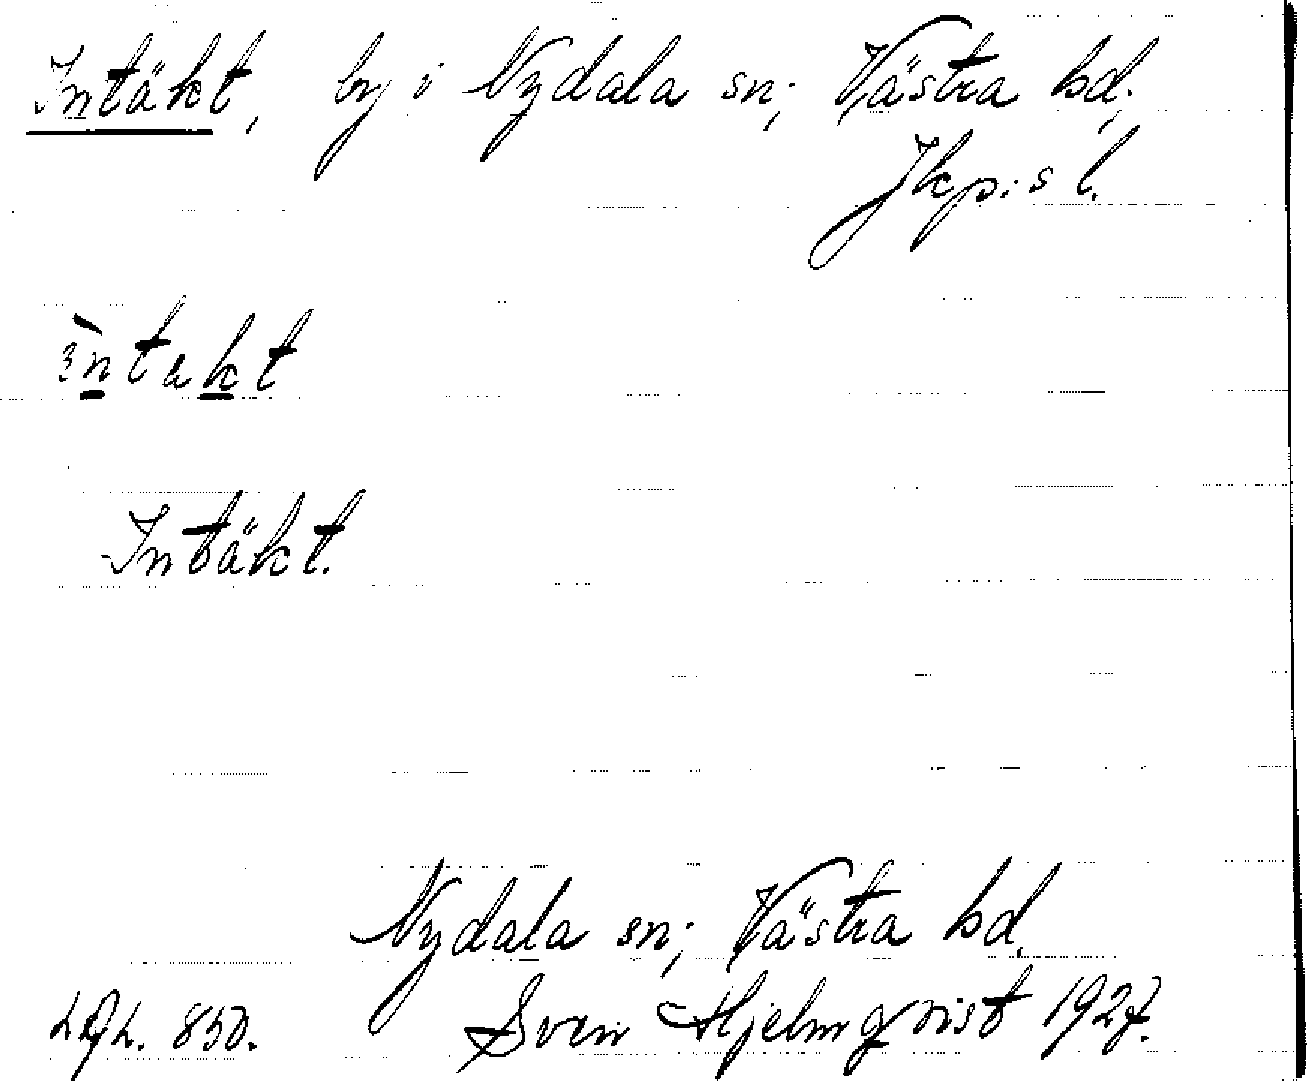 Intäkt, by i Nydala sn; Västra hd;
Jkp:s l.
ìntakt
Intäkt.
Nydala sn; Västra hd.
Sven Hjelmqvist 1927.